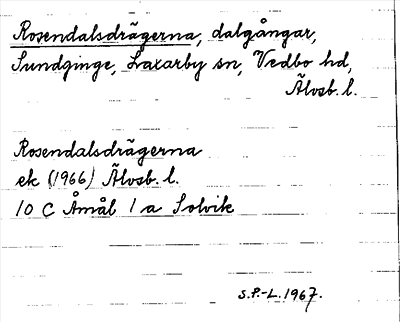 Rosendalsdrägerna, dalgångar,
Sundginge, Laxarby sn, Vedbo hd,
Älvsb. l.
Rosendalsdrägerna
ek (1966) Älvsb. l.
10 C Åmål 1 a Solvik
S.P.-L. 1967.